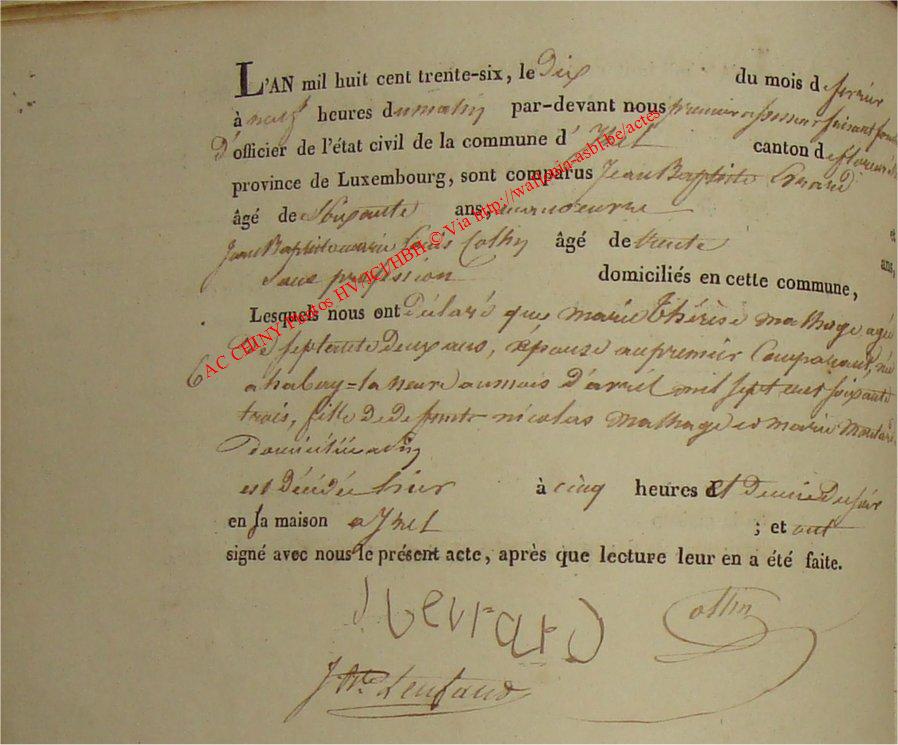 L'AN mil huit cent trente-six, le dix du mois de fevrier
à neuf heures du matin par-devant nous premier assesseur faisant
d'officier de l'état civil de la commune d' Izel canton de
province de Luxembourg, sont comparus Jean Baptiste Evrard
âgé de soixante ans, manoeuvre et
Jean Baptiste Louis Collin âgé de trente ans,
sans profession domiciliés en cette commune,
Lesquels nous ont déclaré que marie thérèse mathage agée
de septante deux ans, épouse au premier Comparant, née
a habay-la neuve au mois d'avril mil sept cent soixante
trois, fille de defunts nicolas mathage et marie
domiciliée
6
est décédée hier à cinq heures et demie du soir
en sa maison a Izel ; et ont
signé avec nous le présent acte, après que lecture leur en a été faite.
evrard Collin
AC CHINY Photos HV/JCl/HBH © Via http://wallonia-asbl.be/actes/